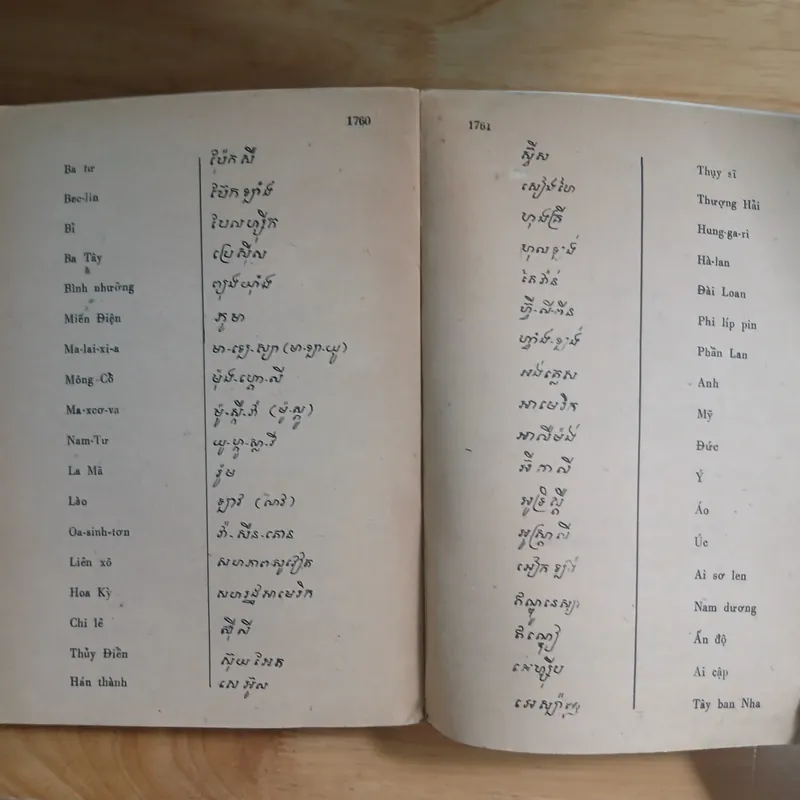 1760
Ba tư ប៉ែកសី
Bec-lin ប៊ែកឡាំង
Bỉ បែលហ្ស៊ិក
Ba Tây ប្រេស៊ីល
Bình nhưỡng ព្យុងយ៉ាំង
Miến Điện ភូមា
Ma-lai-xi-a មា-ឡេ-ស្យា (មា-ឡា-យូ)
Mông Cổ ម៉ុង-ហ្គោ-លី
Ma-xcơ-va ម៉ូ-ស្គី-វ៉ា (ម៉ូ-ស្គូ)
Nam-Tư យូ-ហ្គូ-ស្លា-វី
La Mã រ៉ូម
Lào ឡាវ (លាវ)
Oa-sinh-tơn វ៉ា-ស៊ីន-តោន
Liên xô សហភាព-សូវៀត
Hoa Kỳ សហរដ្ឋអាមេរិក
Chi lê ស៊ីលី
Thủy Điền ស៊ុយអែត
Hán thành សេអ៊ូល
1761
ស្វីស Thụy sĩ
សៀងហៃ Thượng Hải
ហុងគ្រី Hung-ga-ri
ហុលឡង់ Hà-lan
តៃវ៉ាន់ Đài Loan
ហ្វី-លី-ពីន Phi líp pin
ហ្វាំង-ឡង់ Phần Lan
អង់គ្លេស Anh
អាមេរិក Mỹ
អាលឺម៉ង់ Đức
អ៊ីតាលី Ý
អូទ្រីស្គី Áo
អូស្ត្រាលី Úc
អៀកឡង់ Ai sơ len
ឥណ្ឌូនេស្យា Nam dương
ឥណ្ឌៀ Ấn độ
អេហ្ស៊ីប Ai cập
អេស្ប៉ាញ Tây ban Nha